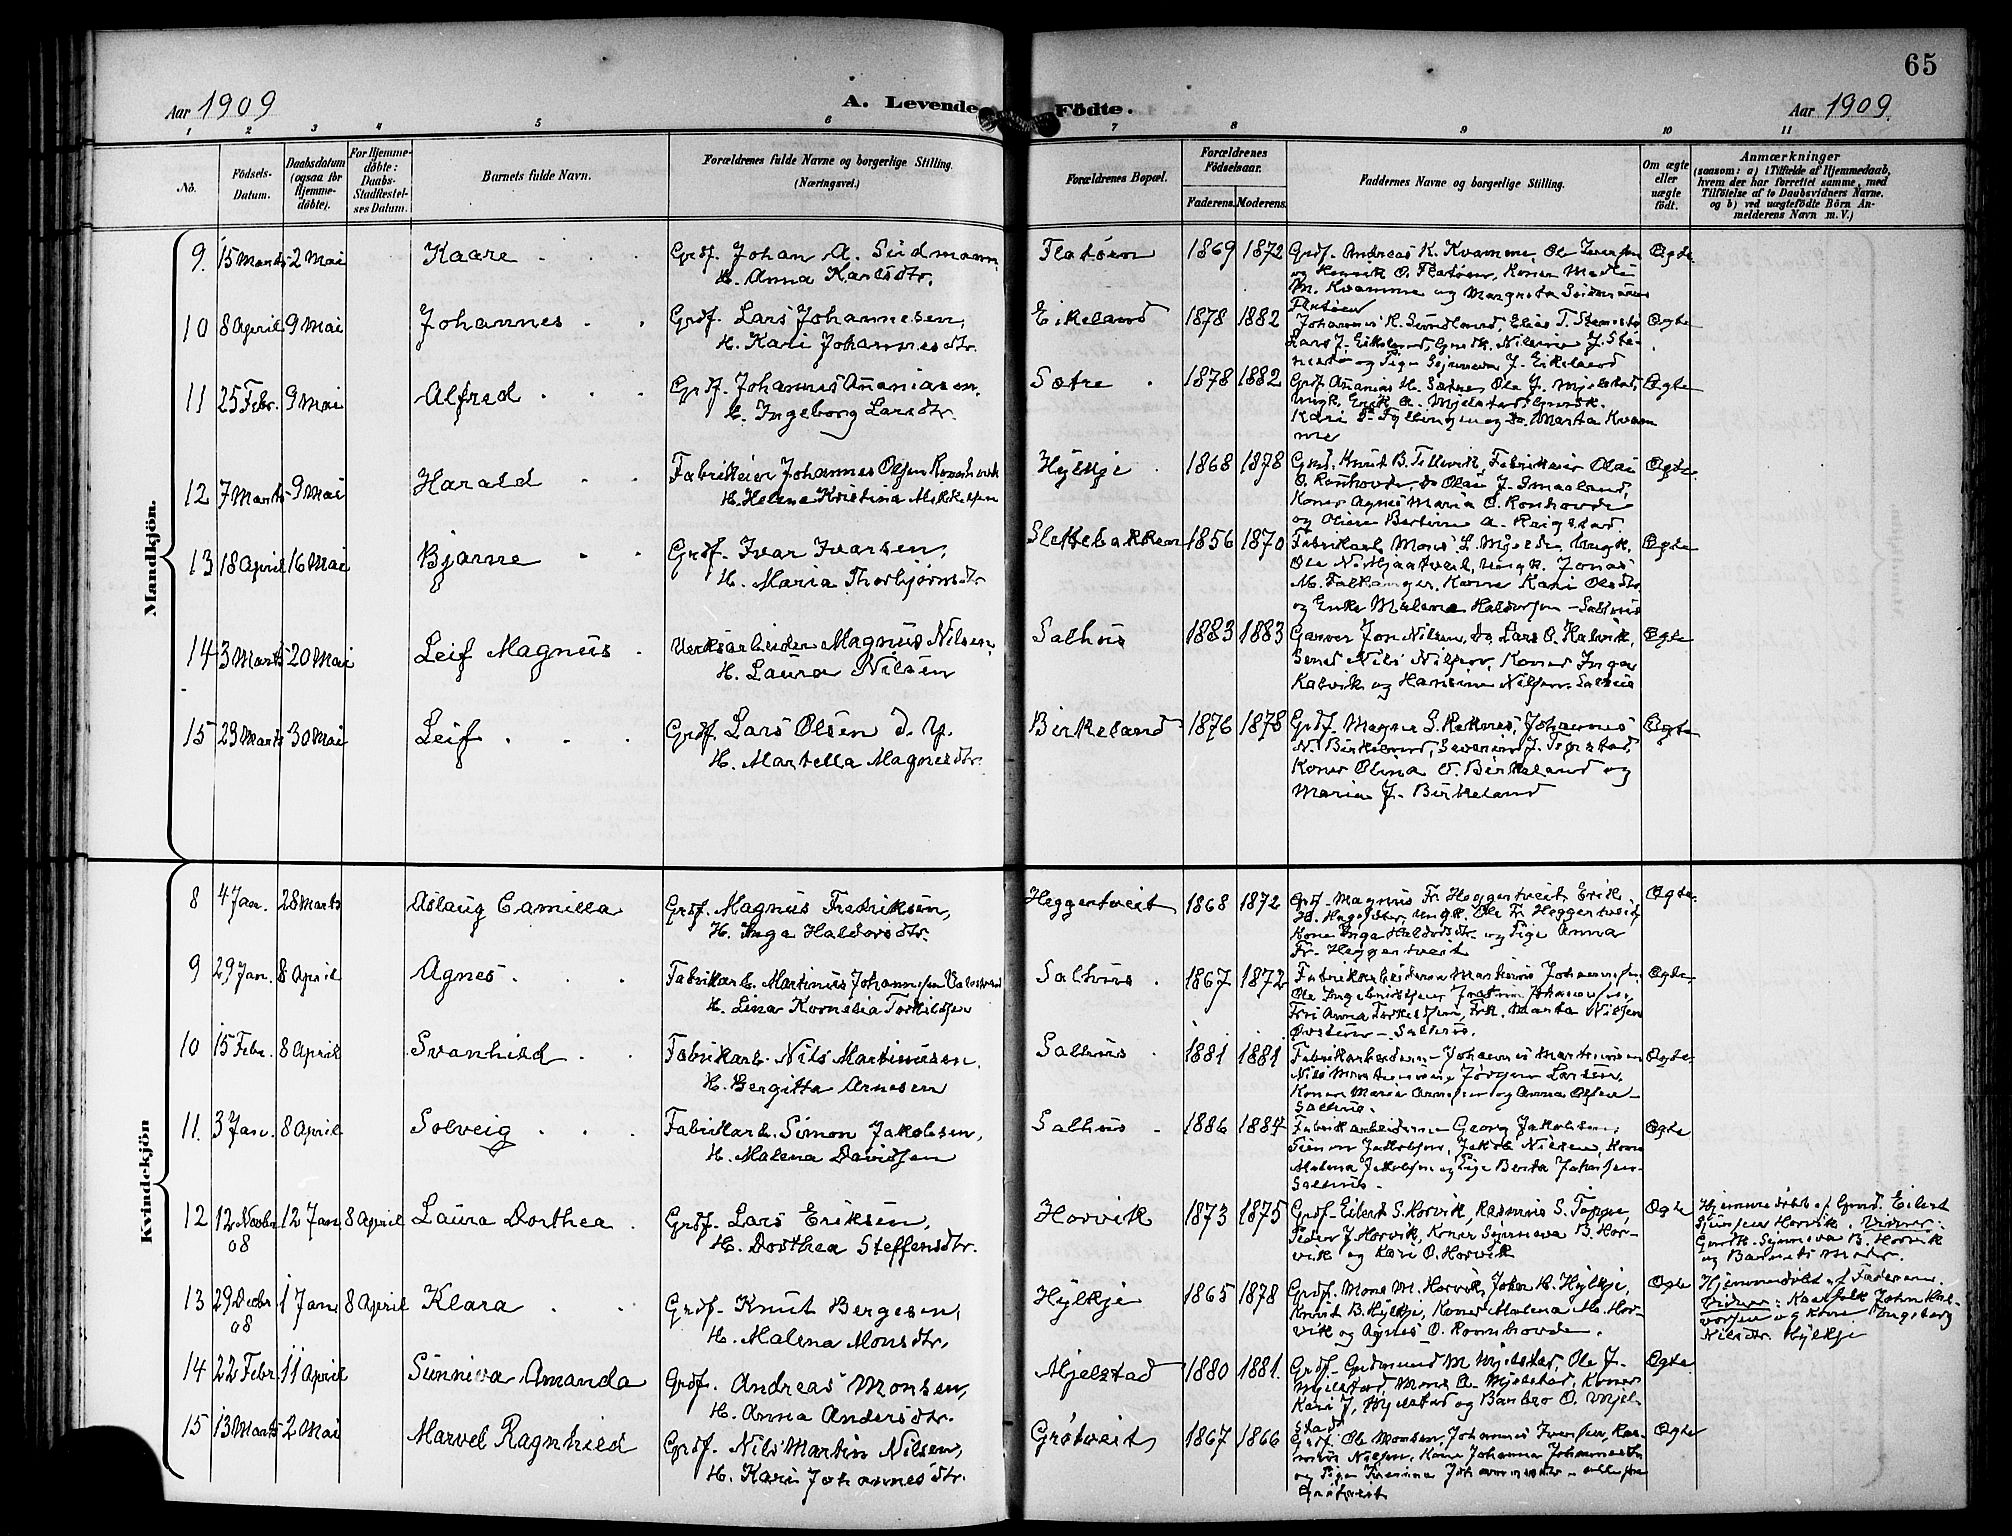 65
Aar 1909
A. Levende Födte.
Aar 1909.
1 2 3 4 5 6 7 8 9 10 11
No.
Födsels-Datum.
Daabsdatum (ogsaa for Hjemme-döbte).
For Hjemme-döbte: Daabs-Stadfæstel-ses Datum.
Barnets fulde Navn.
Forældrenes fulde Navne og borgerlige Stilling. (Næringsvei.)
Forældrenes Bopæl.
Forældrenes Födselsaar.
Faderens. Moderens.
Faddernes Navne og borgerlige Stilling.
Om ægte eller uægte födt.
Anmærkninger
(saasom: a) i Tilfælde af Hjemmedaab, hvem der har forrettet samme, med Tilföielse af to Daabsvidners Navne. og b) ved uægtefödte Börn Anmelderens Navn m. V.)
Mandkjön.
9. 15 Marts 2 Mai Kaare Grdf. Johan A. Seidmann, Flatöen 1869 1872 Grdf. Andreas K. Kvamme, Ole Iversen Ægte
H. Anna Karlsdtr. og Henrik O. Flatöen, Koner
M. Kvamme og Margreta
Flatöen
10 8 April 9 Mai Johannes Grdf. Lars Johannesen, Eikeland 1878 1882 Johannes K. Sundland, Elias T. Ægte
H. Kari Johannesdtr. Lars J. Eikeland,
og Pige J. Eikeland
11 25 Febr. 9 Mai Alfred Grdf. Johannes Ananiasen, Sætre 1878 1882 Grdf. Ananias H. Sætre, Ole J. Mjelstad, Ægte
H. Ingeborg Larsdtr. Ungk. Erik A. Mjelstad,
Kari og Marta Kvam
me
12 7 Marts 9 Mai Harald Fabrikeier Johannes Olsen Romhovde Hylkje 1868 1878 Grdf. Knut B. Fabrikeier Olai Ægte
H. Helene Kristina Mikkelsen O. Romhovde, Do Olai J. Smaaland,
Koner Agnes Maria O. Romhovde
og A.
13 18 April 16 Mai Bjarne Grdf. Ivar Ivarsen, Slettebakken 1856 1870 Fabrikarb. Mons L. Mjelde, Ungk. Ægte
H. Maria Thorbjörnsdtr Ole Ungk. Jonas
M. Falkanger, Kone Kari Olsdtr
og Enke Malena Haldorsen – Salhus
14 3 Marts 20 Mai Leif Magnus Verksarbeider Magnus Nilsen, Salhus 1883 1883 Garver Jon Nilsen, Do Lars O. Kalvik, Ægte
H. Laura Nilsen Nils Nilsen, Koner Inga
Kalvik og Hansine Nilsen Salhus
15 23 Marts 30 Mai Leif Grdf. Lars Olsen d. y. Birkeland 1876 1878 Grdf. Magne S. Johannes Ægte
H. Martella Magnesdtr. N. Birkeland, Severin J.
Koner Olina O. Birkeland og
Maria J. Birkeland
Kvindekjön
8 4 Jan. 28 Marts Aslaug Camilla Grdf. Magnus Fredriksen, Heggertveit 1868 1872 Grdf. Magnus Fr. Heggertveit Erik Ægte
H. Inga Haldorsdtr. Ungk. Ole Fr. Heggertveit,
Kone Inga Haldorsdtr. og Pige Anna
Fr. Heggertveit
9 29 Jan. 8 April Agnes Fabrikarb. Martinus Johannesen Salhus 1867 1872 Fabrikarbeiderne Martinus Johannesen, Ægte
H. Lina Kornelia Torkildsen Ole
Anna Torkelsen, Frk. Marta Nilsen
– Salhus.
10 15 Febr. 8 April Svanhild Fabrikarb. Nils Martinusen Salhus 1881 1881 Fabrikarbeiderne Johannes Martinusen Ægte
H. Bergitta Arnesen Nils Martinusen, Jörgen Larsen,
Koner Maria Arnesen og Anna Olsen –
Salhus.
11. 3 Jan. 8 April Solveig Fabrikarb. Simon Jakobsen, Salhus 1886 1884 Fabrikarbeiderne Georg Jakobsen, Ægte
H. Malena Davidsen Simon Jakobsen, Jakob Nilsen, Kone
Malena Jakobsen og Pige Berta Johansen
Salhus.
12 12 Novbr 08 12 Jan 8 April Laura Dorthea Grdf. Lars Eriksen, Horvik 1873 1875 Grdf. Eilert S. Horvik, Rasmus S. Toppe, Ægte Hjemmedöbt af Grdf. Eilert
H. Dorthea Steffensdtr. Peder J. Horvik, Koner Synneva B. Hor- Horvik. Vidner:
vik og Kari O. Horvik Synneva B. Horvik
og Barnets Moder.
13 29 Decbr 08 1 Jan 8 April Klara Grdf. Knut Bergesen, Hylkje 1865 1878 Grdf. Mons M. Horvik, Johan H. Hylkje, Ægte Hjemmedöbt af Faderen.
H. Malena Monsdtr. Knut B. Hylkje, Koner Malena M. Hor- Vidner: John Hal-
vik og Agnes O. Romhovde. vorsen og Kone Ingeborg
Nilsdtr. Hylkje
14 22 Febr. 11 April Sunniva Amanda Grdf. Andreas Monsen, Mjelstad 1880 1881. Grdf. Gudmund M Mjelstad, Ole J. Ægte
H. Anna Andersdtr. Mjelstad, Mons A. Mjelstad, Koner
Kari J. Mjelstad og Barbro O. Mjel
stad
15 13 Marts 2 Mai Marvel Ragnhild Grdf. Nils Martin Nilsen, Grötveit 1867 1866 Grdf. Ole Monsen, Johannes Iversen, Ras- Ægte
H. Kari Johannesdtr. mus Nilsen, Kone Johanna Johannesdtr
og Pige Johannesdtr – alle fra
Grötveit